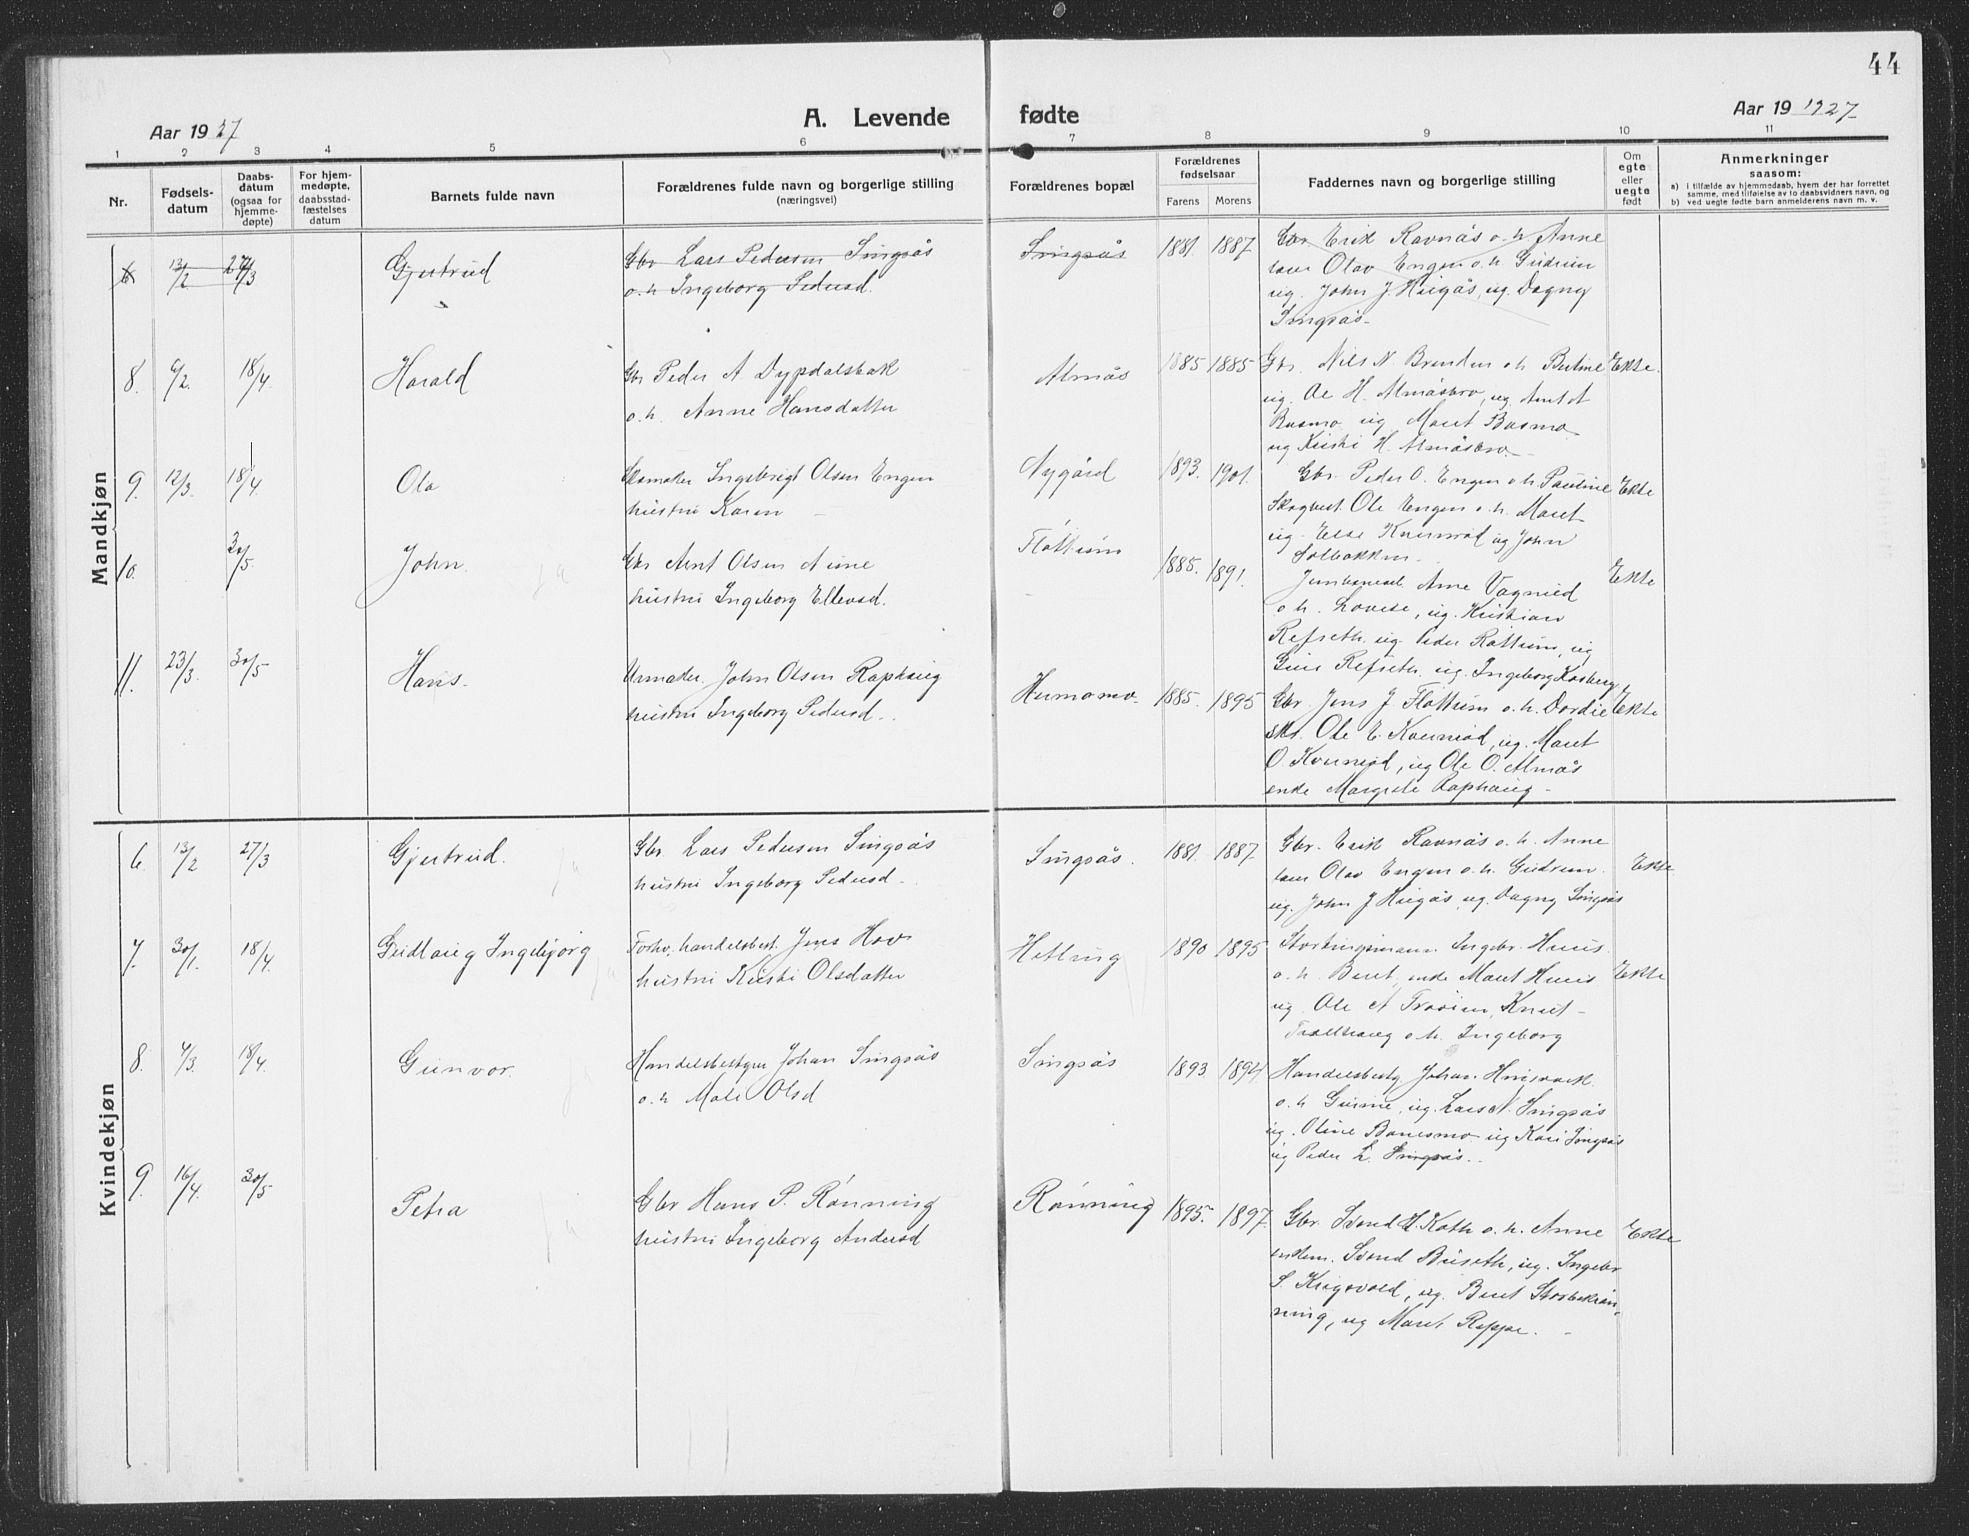 44
Aar 1927
A. Levende fødte
Aar 19 1927
1 2 3 4 5 6 7 8 9 10 11
Nr.
Fødsels-
datum
Daabs-
datum
(ogsaa for
hjemme-
døpte)
For hjem-
medøpte,
daabsstad-
fæstelses
datum
Barnets fulde navn
Forældrenes fulde navn og borgerlige stilling
(næringsvei)
Forældrenes bopæl
Forældrenes
fødselsaar
Farens Morens
Faddernes navn og borgerlige stilling
Om
egte
eller
uegte
født
Anmerkninger
saasom:
a) i tilfælde av hjemmedaab, hvem der har forrettet
samme, med tilføielse av to daabsvidners navn, og
b) ved uegte fødte barn anmelderens navn m. v.
Mandkjøn
6 13/2 27/3 Gjertrud
Gbr Lars Pedersen Singsås
o.h Ingeborg Pedersd.
Singsås 1881. 1887.
Gbr. Erik Ravnås o.h Anne
Olav Engen o.h. Gudrun
ug. John J. Haugås, ug. Dagny
Singsås
8. 6/2 18/4. Harald
Gbr Peder A Dypdalsbak
o.h. Anne Hansdatter
Almås 1885 1885
Gbr. Nils N. Brenden o.h
ug. Ole H. Almåsbro, ug.
Busmo, ug Maret Busmo
ug Kristi H. Almåsbro
Ekte.
9. 12/3. 18/4. Ola
Skomaker Ingebrigt Olsen Engen
hustru Karen
Nygård 1893. 1901.
Gbr. Peder O. Engen o.h Pauline
Skogbest. Ole Engen o.h. Maret
ug. Else Kvernrød ug John
Solbakken
Ekte
10. 30/5. John.
Gbr Arnt Olsen Aune
hustru Ingeborg Ellevsd.
Flottum 1885. 1891.
Arne Vagnild
o.h. Lovise, ug. Kristian
Refseth, ug. Peder Rottum, ug
Refseth, ug. Ingeborg Kosberg
Ekte
11. 23/3. 30/5 Hans.
Urmaker. John Olsen Raphaug
hustru Ingeborg Pedersd.
1885. 1895
Gbr. Jens J. Flottum o.h. Dordie
Ole E. Kvernrød, ug. Maret
O Kvernrød, ug Ole O. Almås
enke Margrete Raphaug
Ekte
Kvindekjøn
6. 13/2 27/3 Gjertrud.
Gbr. Lars Pedersen Singsås
hustru Ingeborg Pedersd.
Singsås. 1881. 1887
Gbr. Erik Ravnås o.h. Anne
Olav Engen o.h. Gudrun.
ug. John J Haugås, ug. Dagny Singsås
Ekte
7. 30/1. 18/4. Gudlaug Ingebjørg
Forhv. handelsbest. Jens Hov
hustru Kristi Olsdatter
Hetling 1890 1895
Stortingsmann Ingebr. Huus.
o.h. Beret, enke Maret Huus
ug. Ole A Trøøien, Knut
Trollhaug o.h. Ingeborg
Ekte
8. 4/3. 18/4. Gunvor.
Handelsbestyrer Johan Singsås
o.h Mali Olsd
Singsås 1893 1894
Handelsbesty Johan
o.h Gurine, ug. Lars N. Singsås
ug. Oline Bonesmo ug Kari Singsås
ug Peder L. Singsås.
9. 16/4. 30/5 Petra
Gbr Hans P. Rønning
hustru Ingeborg Andersd
Rønning 1895. 1897
Gbr. Svend H. Koth o.h. Anne
Svend Buseth, ug. Ingebr
S. Krigsvold, ug. Beret Storbekrøn-
ning, ug Maret Reppe.
Ekte